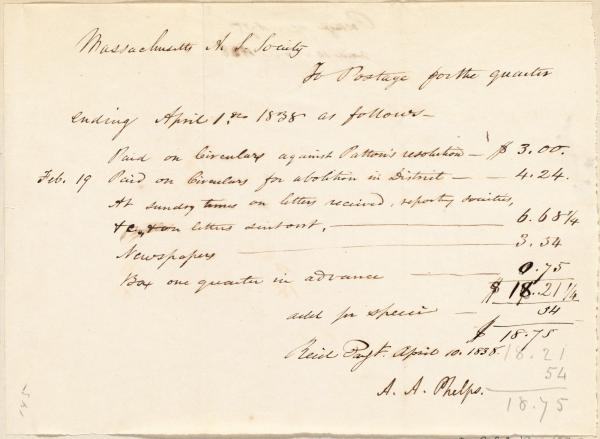 Massachusetts A. S. Society
To Postage for the quarter
ending April 1st 1838 as follows—
Paid on Circulars against Patton's resolution — $ 3.00.
Feb. 19 Paid on Circulars for abolition in District — — 4.24.
At sundry times on letters received, reporting societies,
&c, & on letters sent out, — 6.68 1/4
Newspapers — 3.34
Box one quarter in advance — 0.75
$ 18.21 1/4
add for specie — 54
$ 18.75
Recd Payt. April 10. 1838.
A. A. Phelps.
18.21
54
18.75